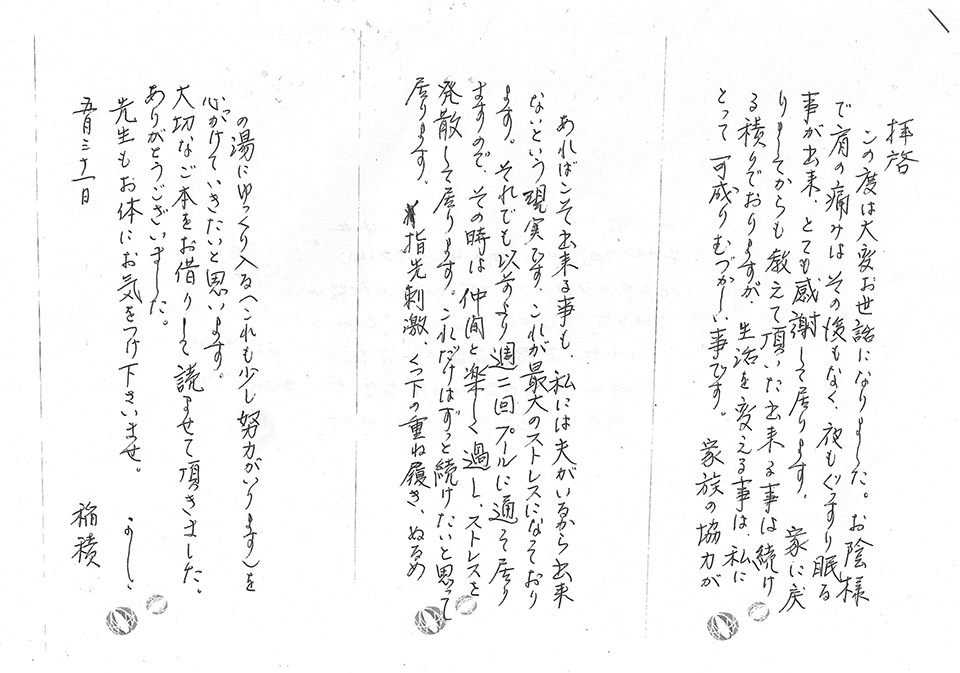 拝啓
この度は大変お世話になりました。お陰様
で肩の痛みはその後もなく、夜もぐっすり眠る
事が出来、とても感謝して居ります。家に戻
りましてからも教えて頂いた出来る事は続け
る積りでおりますが、生活を変える事は、私に
とって可成りむづかしい事です。家族の協力が
あればこそ出来る事も、私には夫がいるから出来
ないという現実です。これが最大のストレスになっており
ます。それでも以前より週二回プールに通って居り
ますので、その時は仲間と楽しく過し、ストレスを
発散して居ります。これだけはずっと続けたいと思って
居ります。指先刺激、くつ下の重ね履き、ぬるめ
の湯にゆっくり入る(これも少し努力がいります)を
心がけていきたいと思います。
大切なご本をお借りして読ませて頂きました。
ありがとうございました。
先生もお体にお気をつけ下さいませ。
五月三十一日
稲積